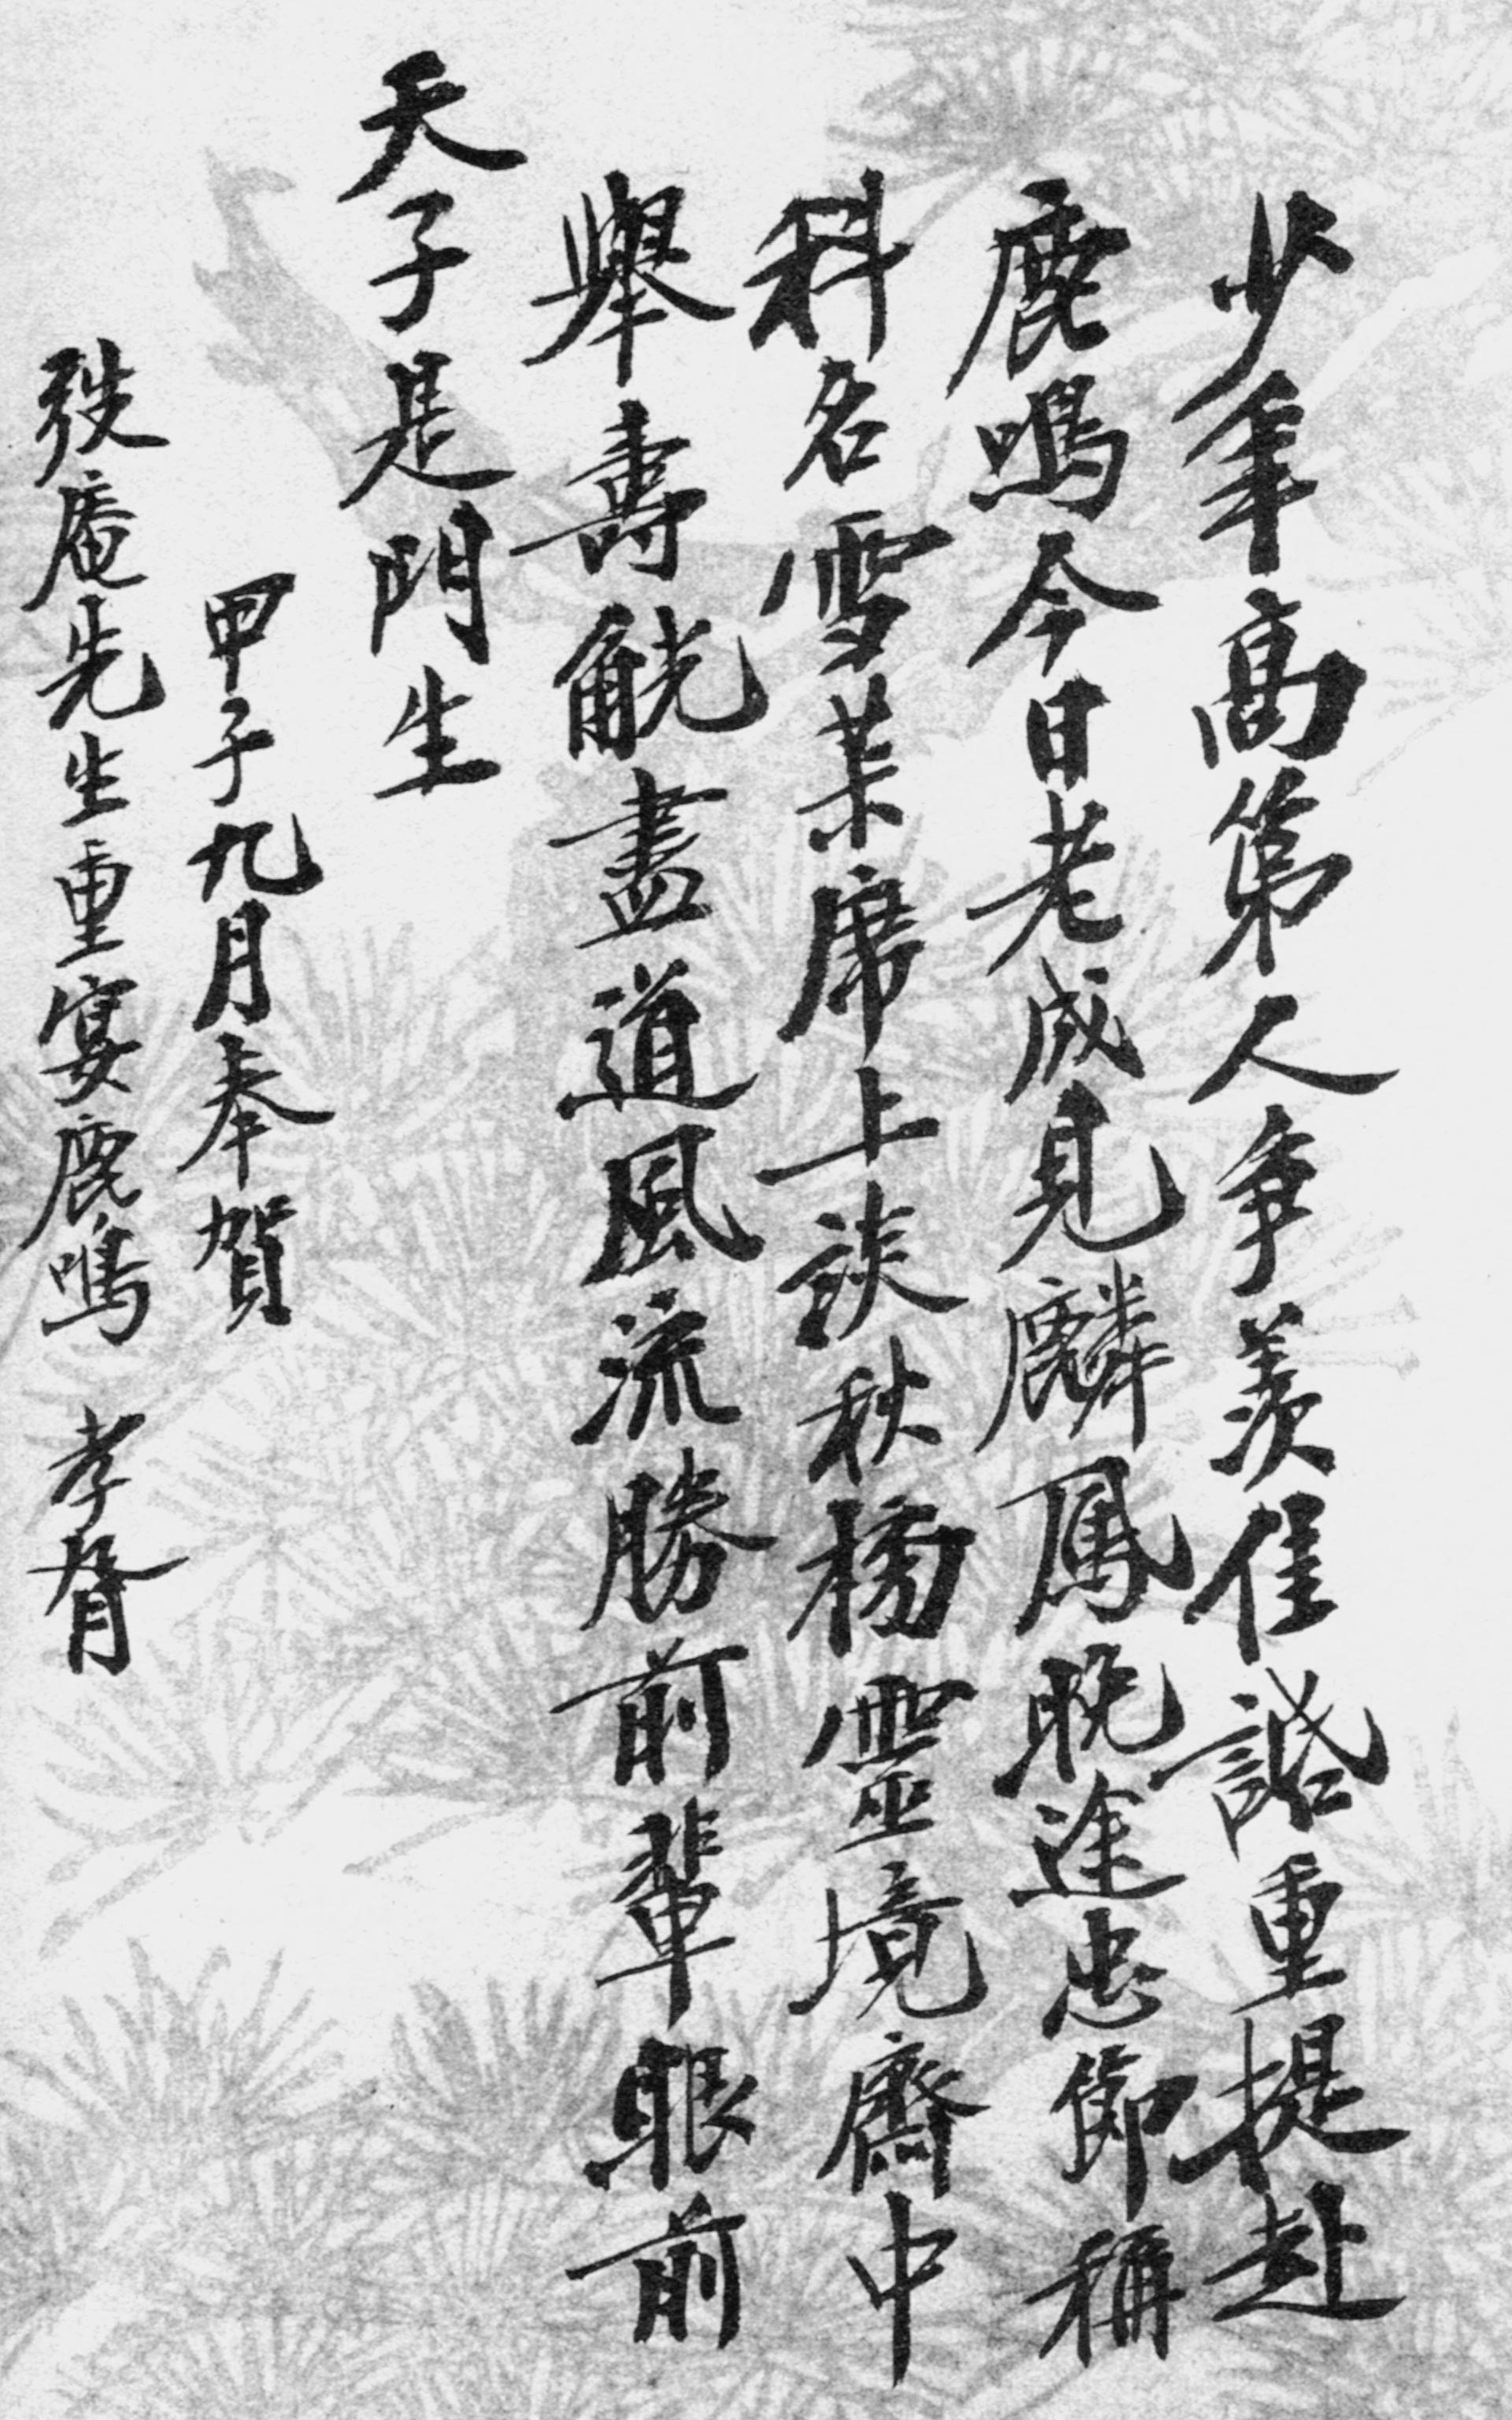 少年高第人爭羨佳話重提赴
鹿鳴今日老成見麟鳳晚途忠節稱
科名雪菜席上談秋橘靈境齋中
舉壽觥盡道風流勝前輩眼前
天子是門生
甲子九月奉賀
弢庵先生重宴鹿鳴 孝胥